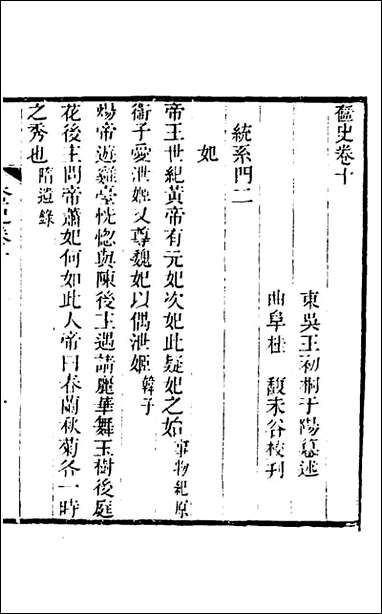 奩史卷十
東吳王初桐于陽纂述
曲阜桂　馥未谷校刊
統系門二
妃
帝王世紀黃帝有元妃次妃此疑妃之始事物紀原
衞子愛泄姬又尊魏妃以偶泄姬韓子
煬帝遊雞臺恍惚與陳後主遇請麗華舞玉樹後庭
花後主問帝蕭妃何如此人帝曰春蘭秋菊各一時
之秀也隋遺錄